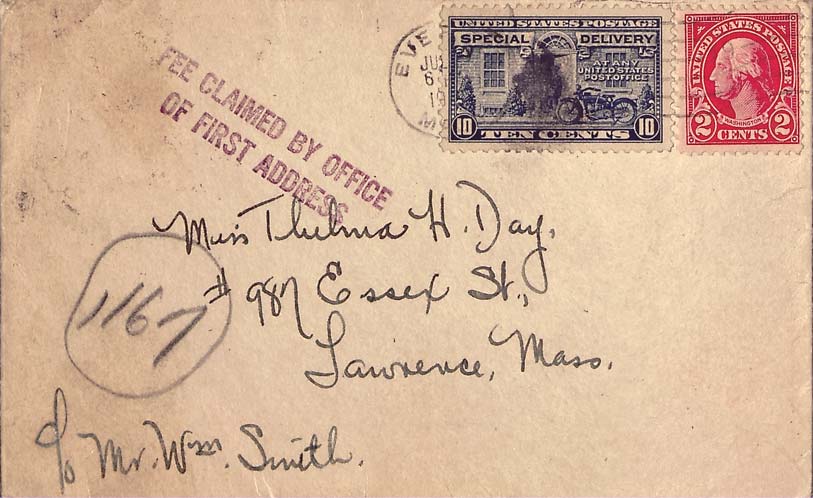 UNITED STATES POSTAGE
SPECIAL DELIVERY
AT ANY
UNITED STATES
POST OFFICE
10 TEN CENTS 10
UNITED STATES POSTAGE
WASHINGTON
2 CENTS 2
FEE CLAIMED BY OFFICE
OF FIRST ADDRESS
Miss Thelma H. Day,
# 987 Essex St.,
Lawrence, Mass.
1167
c/o Mr. Wm. Smith.